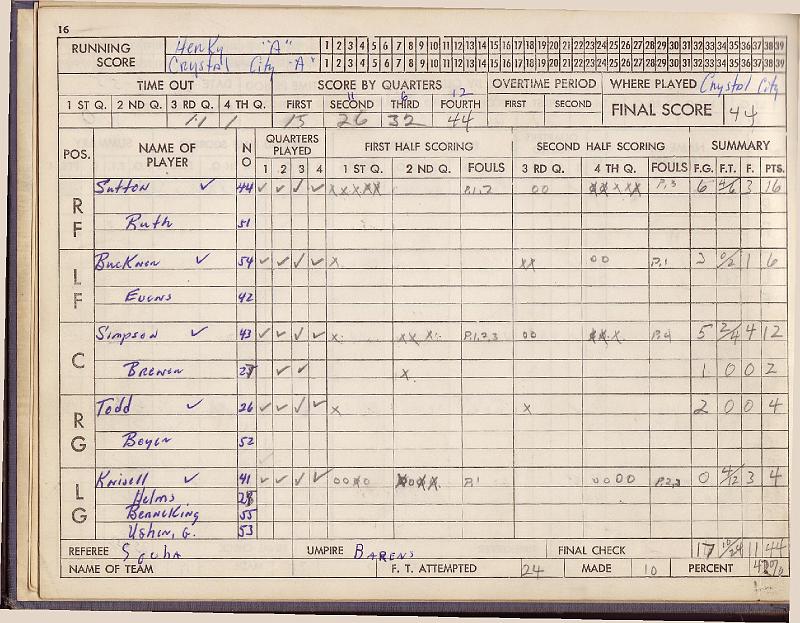 16
RUNNING SCORE Henry "A" 1 2 3 4 5 6 7 8 9 10 11 12 13 14 15 16 17 18 19 20 21 22 23 24 25 26 27 28 29 30 31 32 33 34 35 36 37 38 39
Crystal City "A" 1 2 3 4 5 6 7 8 9 10 11 12 13 14 15 16 17 18 19 20 21 22 23 24 25 26 27 28 29 30 31 32 33 34 35 36 37 38 39
TIME OUT SCORE BY QUARTERS OVERTIME PERIOD WHERE PLAYED Crystal City
11 6 12
1 ST Q. 2 ND Q. 3 RD Q. 4 TH Q. FIRST SECOND THIRD FOURTH FIRST SECOND FINAL SCORE 44
15 26 32 44
POS. NAME OF PLAYER NO QUARTERS PLAYED FIRST HALF SCORING SECOND HALF SCORING SUMMARY
1 2 3 4 1 ST Q. 2 ND Q. FOULS 3 RD Q. 4 TH Q. FOULS F.G. F.T. F. PTS.
RF Sutton ✓ 44 ✓ ✓ ✓ ✓ XXXXX P.1,2 00 XXXXX P.3 6 4/6 3 16
Ruth 51
LF Bucknor ✓ 54 ✓ ✓ ✓ ✓ X XX 00 P.1 3 0/2 1 6
Evens 42
C Simpson ✓ 43 ✓ ✓ ✓ ✓ X XXX P.1,2,3 00 XXX P.4 5 2/4 4 12
Brewen ✓ ✓ X 1 0 0 2
RG Todd ✓ 26 ✓ ✓ ✓ ✓ X X 2 0 0 4
Boyer 52
LG Knisell ✓ 41 ✓ ✓ ✓ ✓ 00X0 X0XX P.1 0000 P.2,3 0 4/12 3 4
Helms
Berneking 55
Usher, G. 53
REFEREE UMPIRE Barens FINAL CHECK 17 10/24 11 44
NAME OF TEAM F. T. ATTEMPTED 24 MADE 10 PERCENT